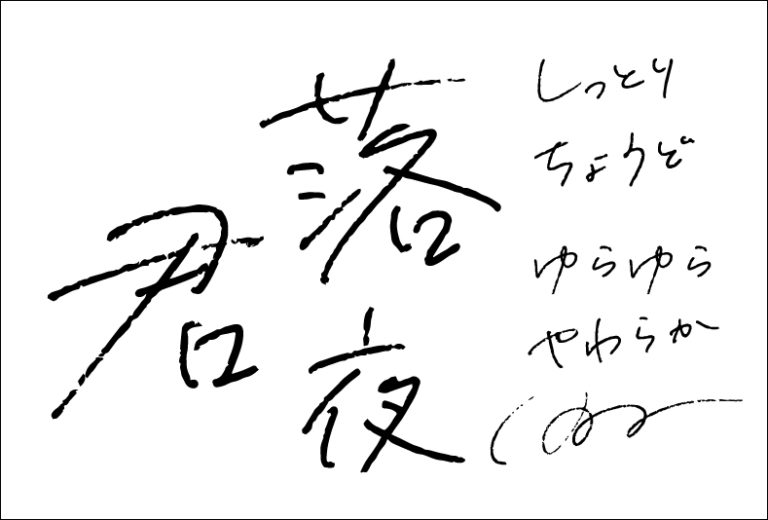 しっとり
ちょうど
ゆらゆら
やわらか
落
夜
君